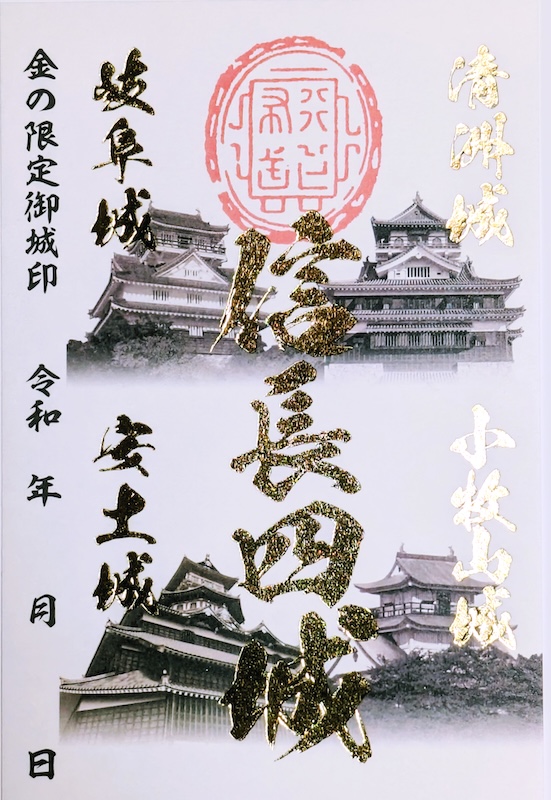 清洲城
小牧山城
信長四城
岐阜城
安土城
金の限定御城印
令和 年 月 日